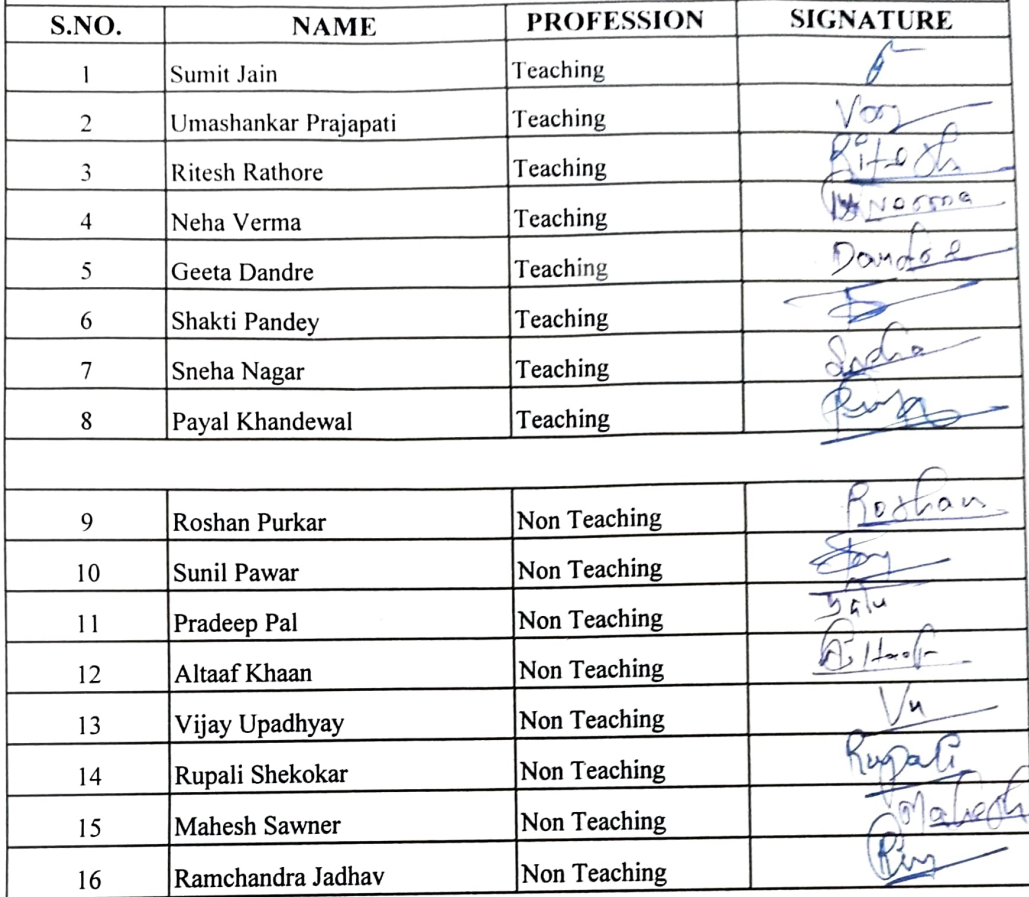 S.NO. NAME PROFESSION SIGNATURE
1 Sumit Jain Teaching
2 Umashankar Prajapati Teaching
3 Ritesh Rathore Teaching Ritesh
4 Neha Verma Teaching
5 Geeta Dandre Teaching Dandre
6 Shakti Pandey Teaching
7 Sneha Nagar Teaching
8 Payal Khandewal Teaching
9 Roshan Purkar Non Teaching Roshan
10 Sunil Pawar Non Teaching
11 Pradeep Pal Non Teaching
12 Altaaf Khaan Non Teaching Altaaf
13 Vijay Upadhyay Non Teaching
14 Rupali Shekokar Non Teaching Rupali
15 Mahesh Sawner Non Teaching Mahesh
16 Ramchandra Jadhav Non Teaching